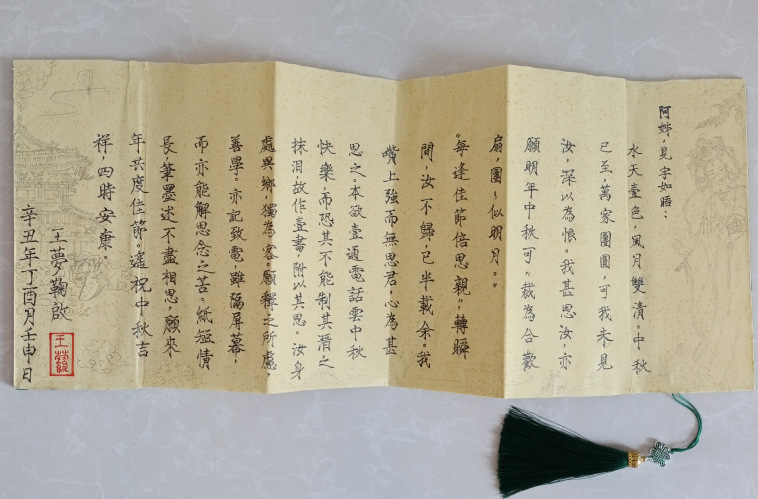 阿姊,見字如晤:
水天壹色,風月雙清。中秋
已至,萬家團圓,可我未見
汝,深以為恨。我甚思汝,亦
願明年中秋可“裁為合歡
扇,團~似明月。”
“每逢佳節倍思親”,轉瞬
間汝不歸,已半載余。我
嘴上強而無思君,心為甚
思之。本欲壹通電話雲中秋
快樂,而恐其不能制其潸之
抹泪,故作壹書,附以其思。汝身
處異鄉,獨為客。願釋之所慮,
善學。亦記致電,雖隔屏幕,
而亦能解思念之苦。紙短情
長,筆墨述不盡相思。願來
年共度佳節。遙祝中秋吉
祥,四時安康。
王夢鞠啟
辛丑年丁酉月壬申日